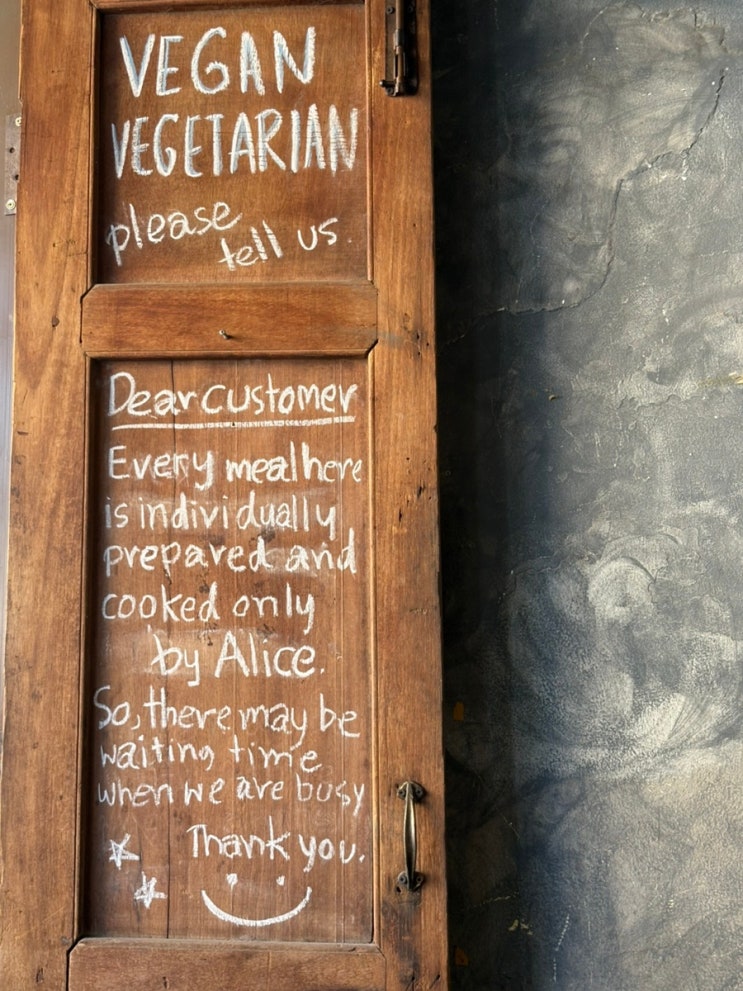 VEGAN
VEGETARIAN
please
tell us.
Dear customer
Every meal here
is individually
prepared and
cooked only
by Alice.
So, there may be
waiting time
when we are busy
Thank you.